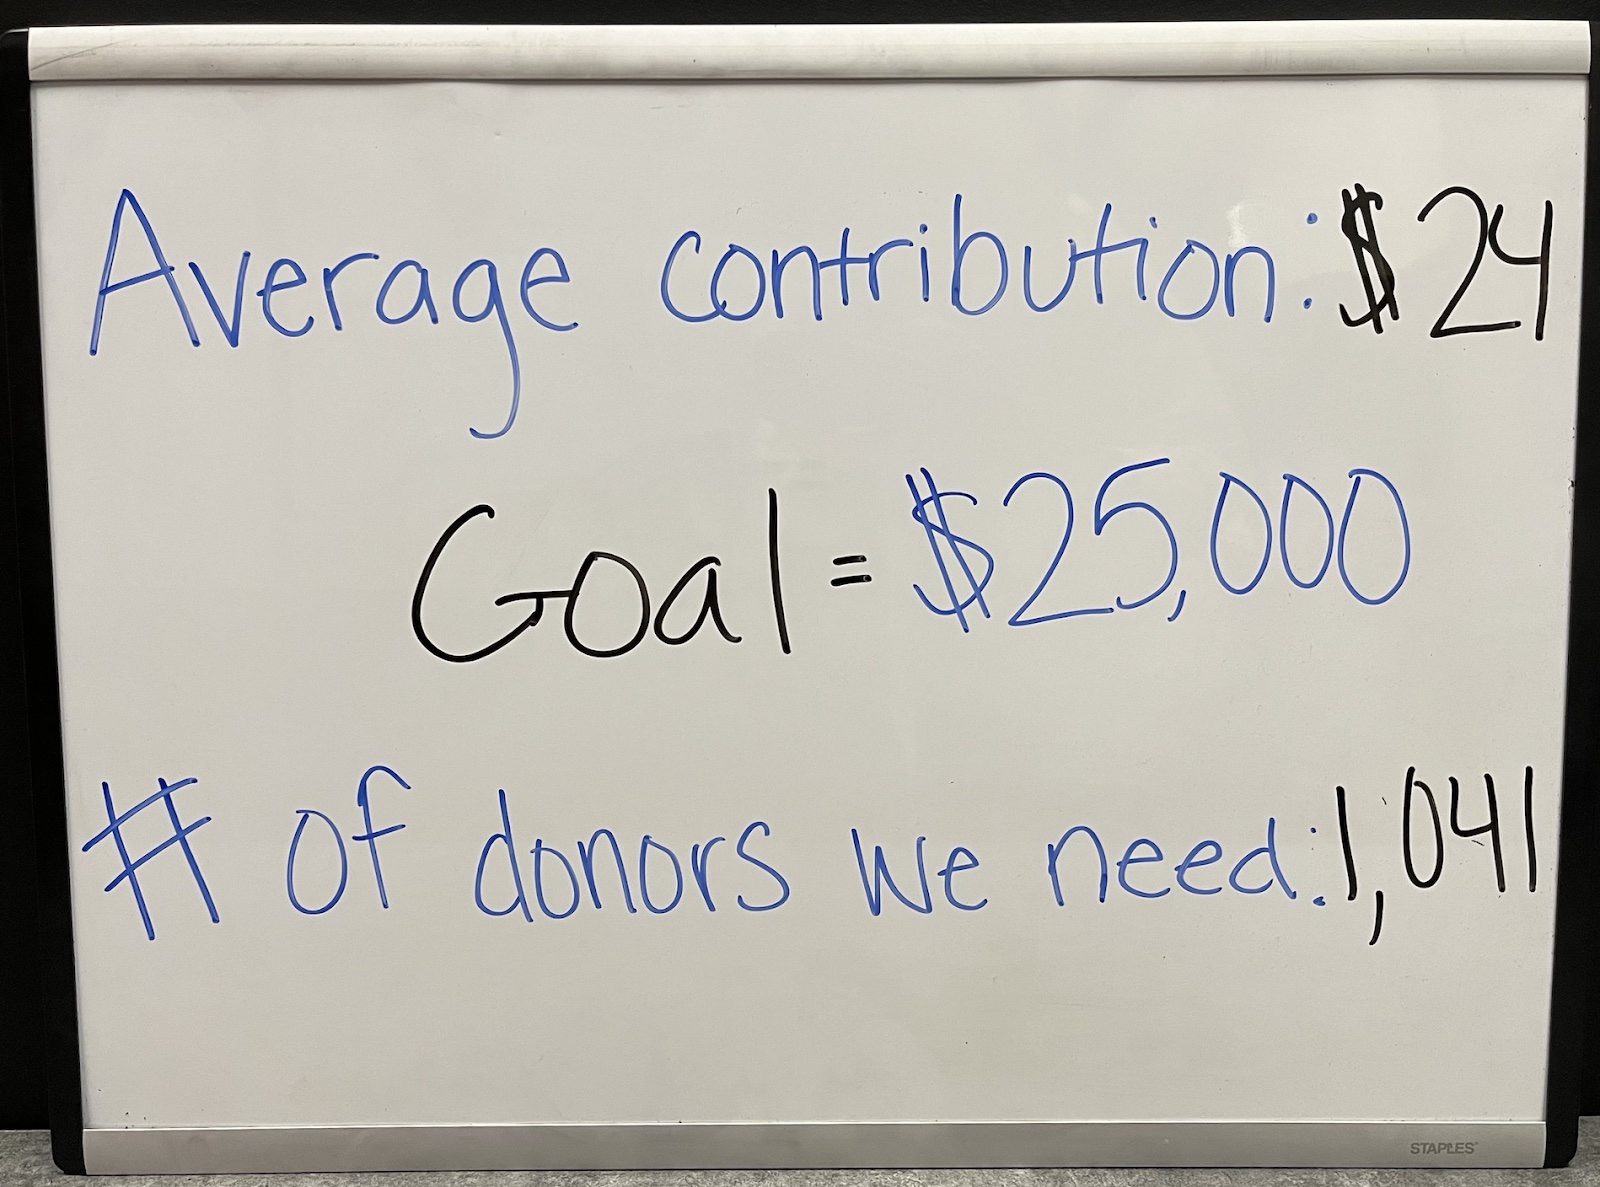 Average contribution: $24
Goal = $25,000
# of donors we need: 1,041
STAPLES